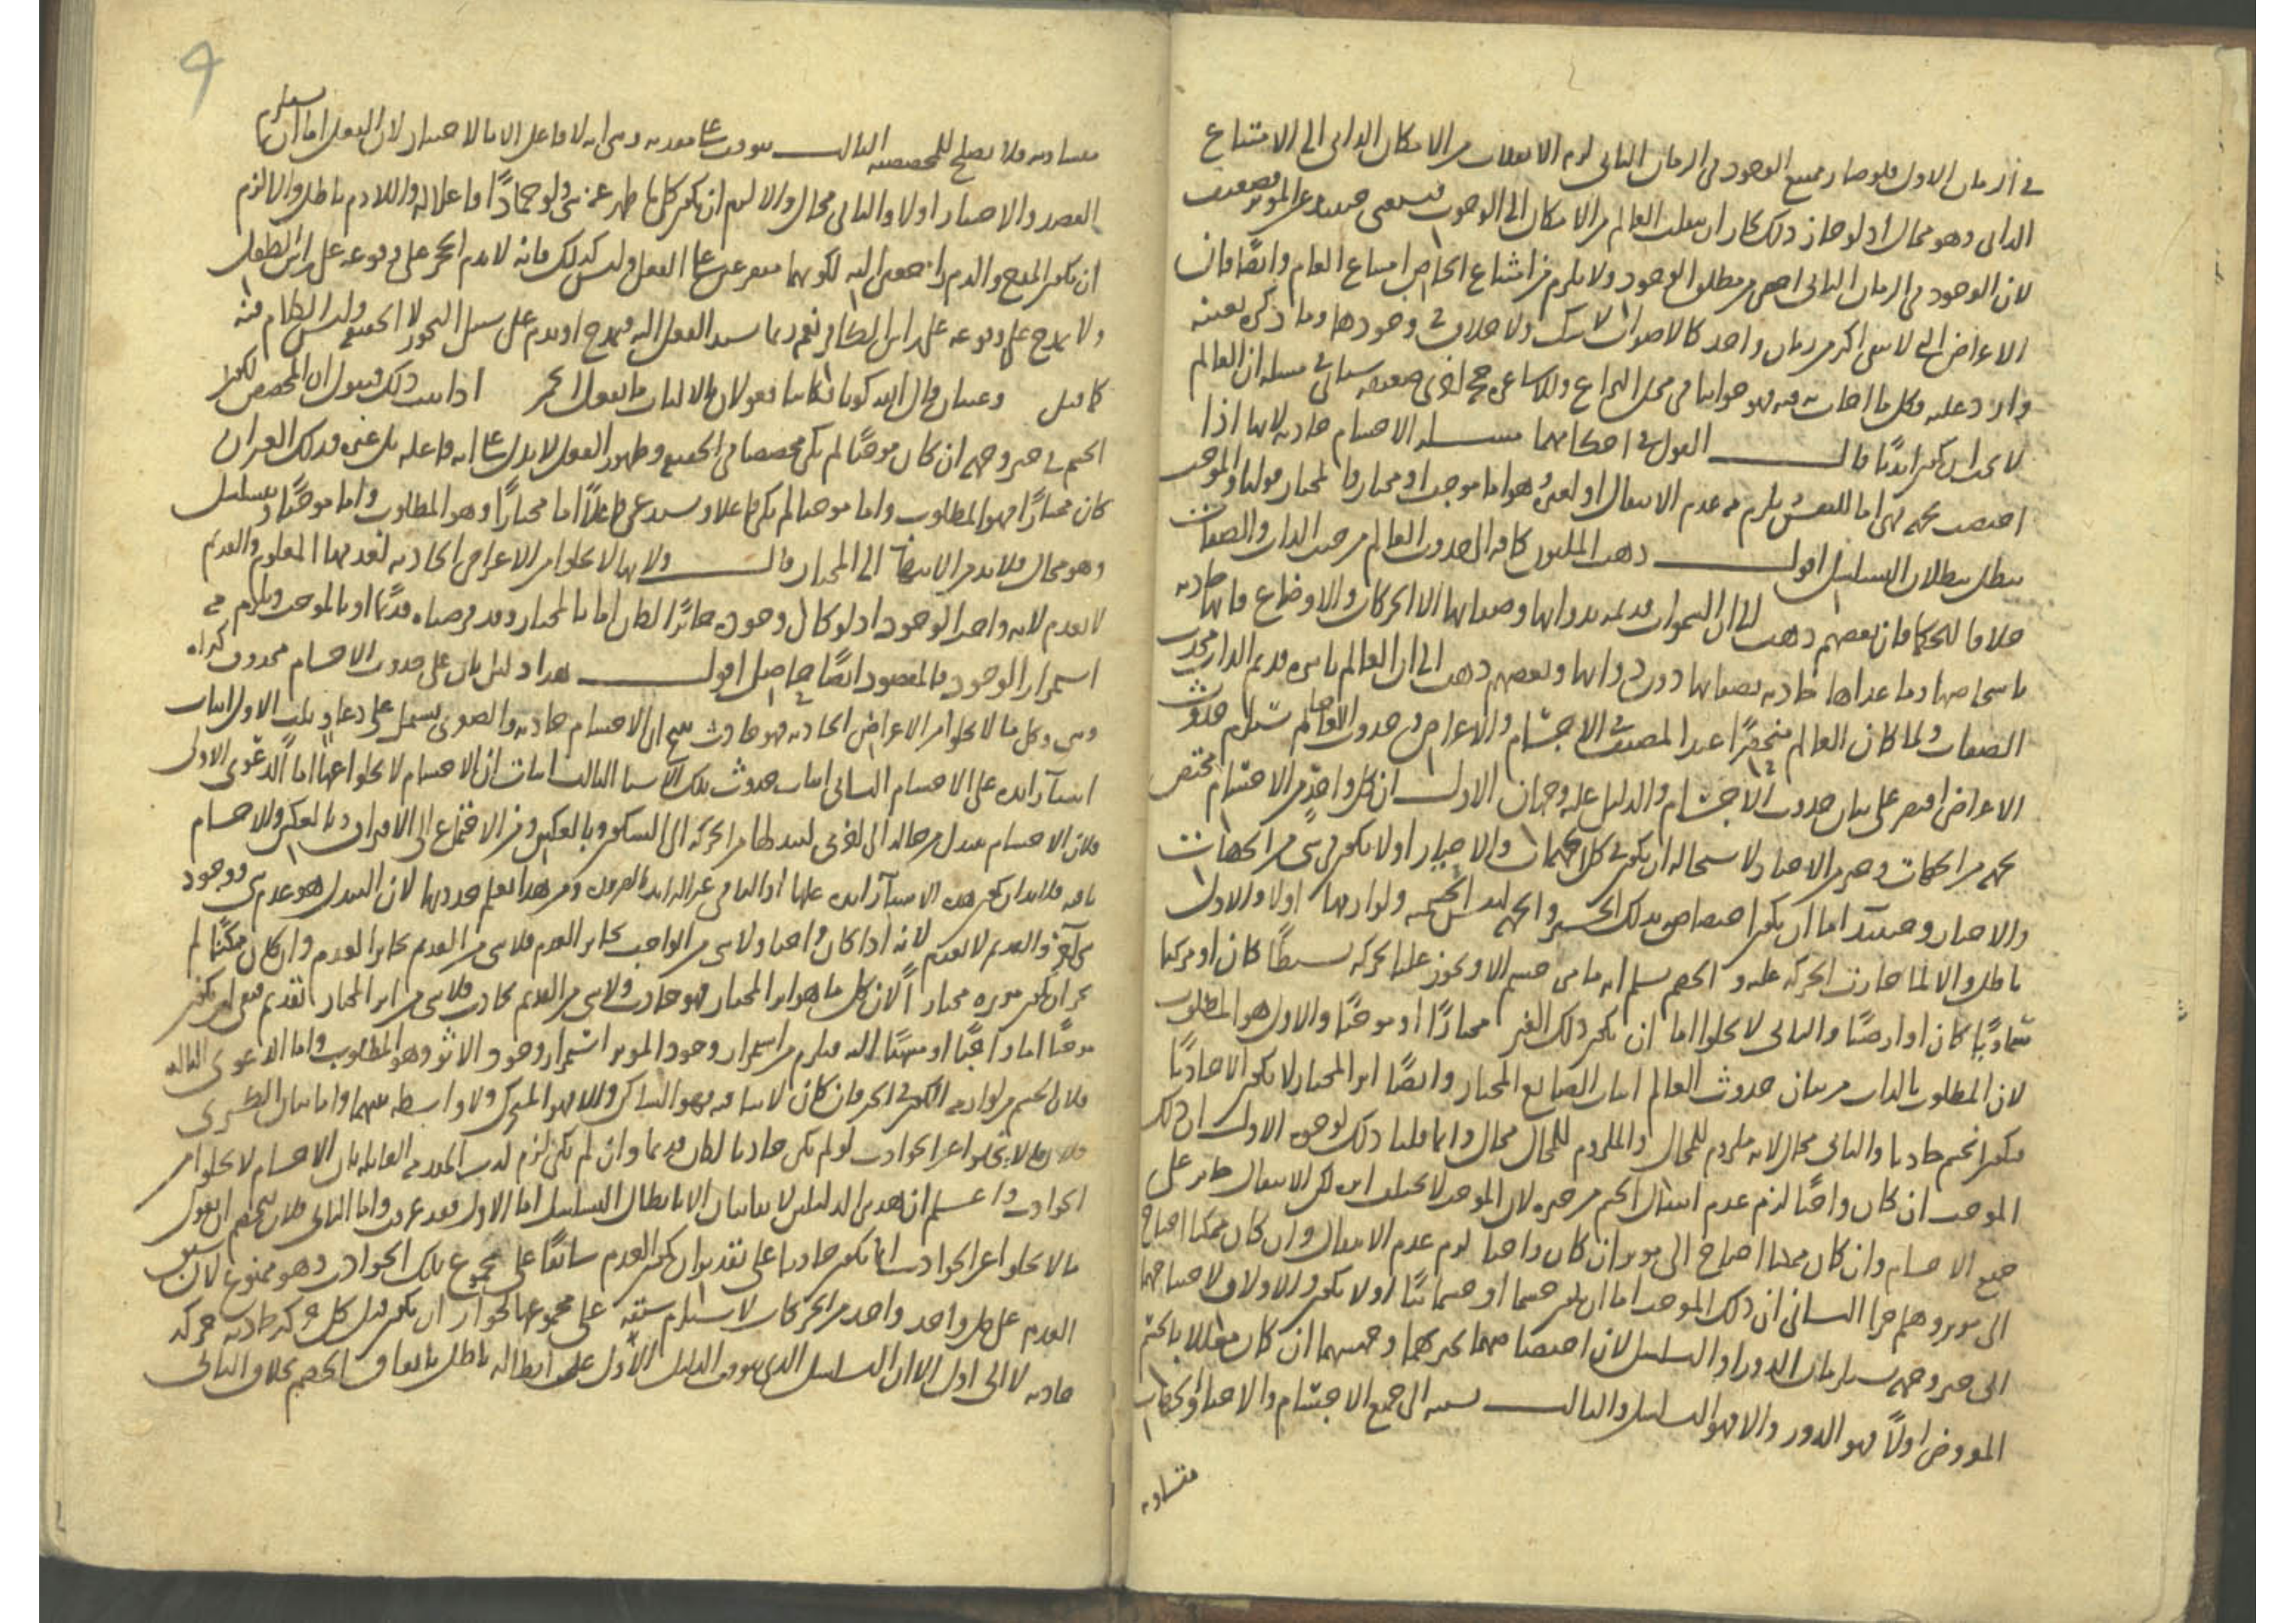 في الزمان الاول فلو صار ممتنع الوجود في الزمان الثاني لزم الانقلاب من الامكان الذاتي الى الامتناع
الذاتي وهو محال اذ لو جاز ذلك لجاز ان ينقلب العالم من الامكان الى الوجوب فيستغنى حينئذ عن الموثر وضعيف
لان الوجود في الزمان الثاني اخص من مطلق الوجود ولا يلزم من امتناع الخاص امتناع العام وايضا فان
الاعراض التي لا تبقى اكثر من زمان واحد كالاصوات لا شك ولا خلاف في وجودها وما ذكره بعينه
وارد عليه فكل ما اجاب به فهو جوابنا في محل النزاع وللاشاعرة حجج اخرى ضعيفة سياتي في مسئلة ان العالم
لا يجب ان يكون ابديا قال القول في احكامهما مسئلة الاجسام حادثة لانها اذا
اختصت بجهة فهي اما للنفس يلزم منه عدم الانتقال او لغيره وهو اما موجب او مختار فالمختار قولنا والموجب
يبطل ببطلان التسلسل اقول ذهب المليون كافة الى حدوث العالم من حيث الذات والصفات
خلافا للحكما فان بعضهم ذهب الى ان السموات قديمة بذواتها وصفاتها الا الحركات والاوضاع فانها حادثة
باشخاصها وما عداها حادثة بصفاتها دون ذواتها وبعضهم ذهب الى ان العالم باسره قديم الذات محدث
الصفات ولما كان العالم منحصرا عند المصنف في الاجسام والاعراض وحدوث الاجسام يستلزم حدوث
الاعراض اقتصر على بيان حدوث الاجسام والدليل عليه وجهان الاول ان كل واحد من الاجسام مختص
بجهة من الجهات وحيز من الاحياز لاستحالة ان يكون في كل الجهات والاحياز او لا يكون في شي من الجهات
والاحياز وحينئذ اما ان يكون اختصاصه بذلك الحيز والجهة لنفس الجسمية ولوازمها اولا والاول
باطل والا لما جازت الحركة عليه والخصم يسلم انه ما من جسم الا ويجوز عليه الحركة بسيطا كان او مركبا
سماويا كان او ارضيا والثاني لا يخلو اما ان يكون ذلك الغير مختارا او موجبا والاول هو المطلوب
لان المطلوب بالذات من بيان حدوث العالم اثبات الصانع المختار وايضا اثر المختار لا يكون الا حادثا
فيكون الجسم حادثا والثاني محال لانه ملزوم للمحال والملزوم للمحال محال وانما قلنا ذلك لوجوه الاول ان ذلك
الموجب ان كان واجبا لزم عدم انتقال الجسم من حيزه لان الموجب لا يختلف اثره لكن الانتقال جائز على
جميع الاجسام وان كان ممكنا احتاج الى موثر ان كان واجبا لزم عدم الانتقال وان كان ممكنا احتاج
الى موثر وهلم جرا الثاني ان ذلك الموجب اما ان يكون جسما او جسمانيا او لا يكون والاولان لاحتياجهما
الى حيز وجهة يستلزمان الدور او التسلسل لان اختصاصهما بحيزهما وجهتهما ان كان معللا بالجسم
المفروض اولا فهو الدور والا فهو التسلسل والثالث نسبته الى جميع الاجسام والاحياز والجهات
متساوية
متساوية فلا يصلح للمخصصية الثالث يتوقف على مقدمة وهي انه لا فاعل الا بالاختيار لان الفعل اما ان يستلزم
القصد والاختيار اولا والثاني محال والا لزم ان يكون كل ما ظهر عنه شي ولو جمادا فاعلا له واللازم باطل والا لزم
ان يكون المدح والذم راجعين اليه لكونهما متفرعين على الفعل وليس كذلك فانه لا يذم الحجر على وقوعه على راس الطفل
ولا يمدح على وقوعه على راس الكافر نعم ربما يسند الفعل اليه فيمدح او يذم على سبيل التجوز لا الحقيقة وليس الكلام فيه
كما قيل وعينان قال الله كونا فكانتا فعولان بالالباب ما تفعل الخمر اذا ثبت ذلك فنقول ان المخصص لكون
الجسم في حيز وجهة ان كان موجبا لم يكن مخصصا في الحقيقة وظهور الفعل لا يدل على انه فاعله بل غيره وذلك الغير ان
كان مختارا فهو المطلوب واما موجبا لم يكن فاعلا ويستدعي فاعلا اما مختارا وهو المطلوب واما موجبا ويتسلسل
وهو محال فلا بد من الانتهاء الى المختار قال ولانها لا يخلو من الاعراض الحادثة لتعدمها المعلوم والقديم
لا يعدم لانه واجب الوجود اذ لو كان وجوده جائزا لكان اما بالمختار وقد فرضناه قديما او بالموجب ويلزم منه
استمرار الوجود فالمقصود ايضا حاصل اقول هذا دليل ثان على حدوث الاجسام
وهي وكل ما لا يخلو من الاعراض الحادثة فهو حادث ينتج ان الاجسام حادثة والصغرى يشتمل على دعاو ثلث الاول اثبات
اشياء زائدة على الاجسام الثاني اثبات حدوث تلك الاشيا الثالث اثبات ان الاجسام لا يخلو عنها اما الدعوى الاولى
فلان الاجسام يتبدل من حالة الى اخرى لتبدلها من الحركة الى السكون وبالعكس ومن الاجتماع الى الافتراق وبالعكس والاجسام
باقية فلا بد ان يكون هذه الاشياء زائدة عليها اذ الباقي غير الزائل بالضرورة ومن هذا يعلم حدوثها لان التبدل هو عدم شي ووجود
شي آخر والقديم لا يعدم لانه اذا كان واجبا ولا شي من الواجب بجائز العدم فلا شي من القديم بجائز العدم وان كان ممكنا لم
يجز ان يكون موثره مختارا لان كل ما هو اثر المختار فهو حادث ولا شي من القديم بحادث فلا شي من اثر المختار بقديم فبقي ان يكون
موجبا اما واجبا او منتهيا اليه فيلزم من استمرار وجود الموثر استمرار وجود الاثر وهو المطلوب واما الدعوى الثالثة
فلان الجسم من لوازمه الكون في الحيز فان كان لابثا فيه فهو الساكن والا فهو المتحرك ولا واسطة بينهما واما بيان الكبرى
فلان ما لا يخلو عن الحوادث لو لم يكن حادثا لكان قديما وان لم يكن لزم كذب المقدمة القائلة بان الاجسام لا يخلو من
الحوادث واعلم ان هذين الدليلين لا يتمان الا بابطال التسلسل اما الاول فقد عرفت واما الثاني فلان للخصم ان يقول
ما لا يخلو عن الحوادث انما يكون حادثا على تقدير ان يكون العدم سابقا على مجموع تلك الحوادث وهو ممنوع لان سبق
العدم على كل واحد واحد من الحركات لا يستلزم سبقه على مجموعها لجواز ان يكون قبل كل حركة حادثة حركة
حادثة لا الى اول الا ان التسلسل الذي يتوقف الدليل الاول على ابطاله باطل باتفاق الخصم بخلاف الثاني